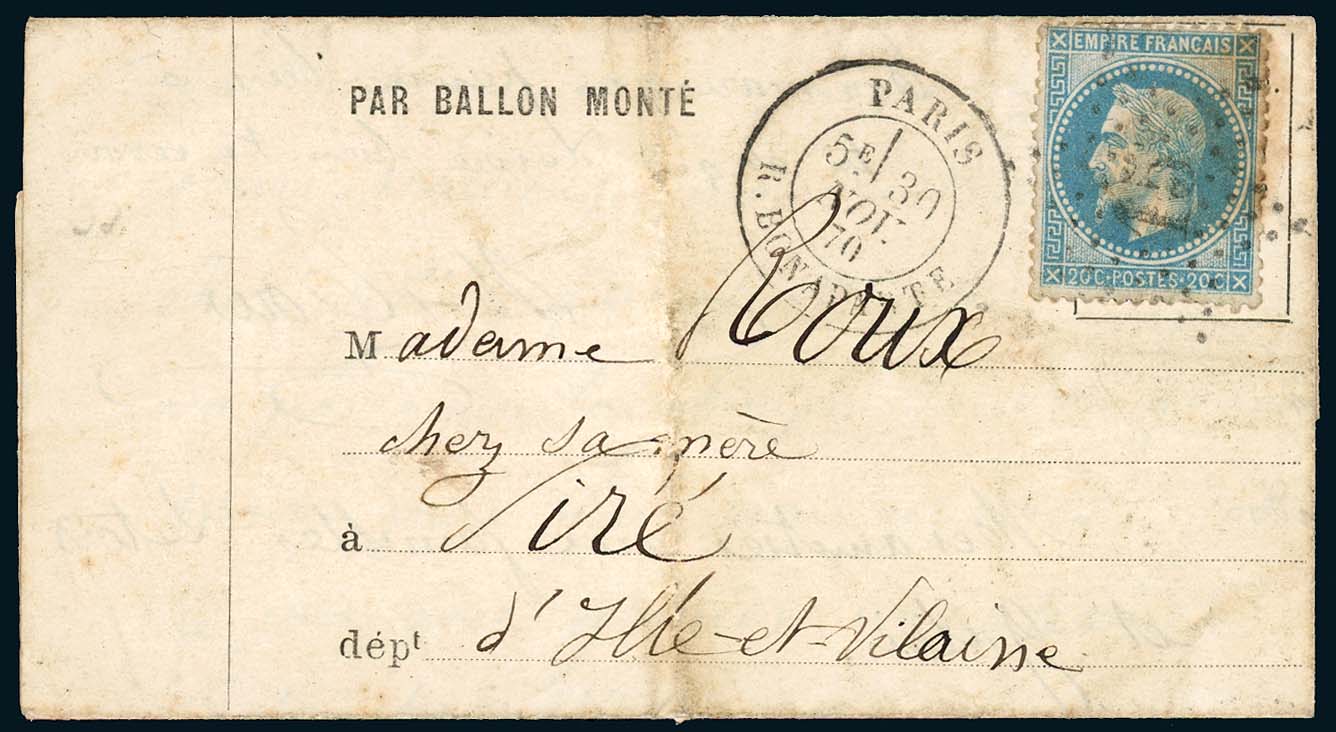 EMPIRE FRANÇAIS
PAR BALLON MONTÉ
PARIS
5E 30
NOV.
70
R. BONAPARTE
20C·POSTES·20C
Madame Roux
chez sa mère
à Piré
dépt d'Ille-et-Vilaine